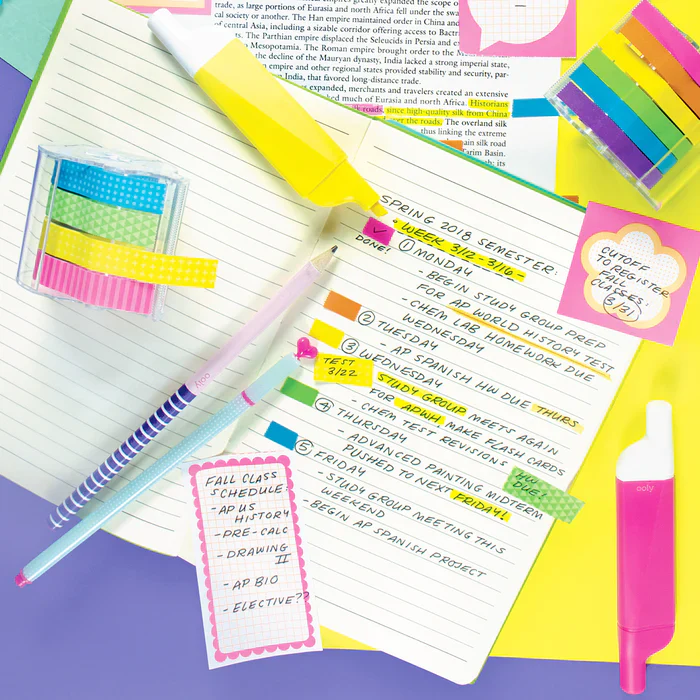 trade, as large portions of Eurasia and north Africa fell under the
cal society or another. The Han empire maintained order in China and
of central Asia, including a sizable corridor offering access to
The Parthian empire displaced the Seleucids in Persia and
Mesopotamia. The Roman empire brought order to the
the decline of the Mauryan dynasty, India lacked a strong imperial state,
empire and other regional states provided stability and security, par-
India, that favored long-distance trade.
expanded, merchants and travelers created an extensive
linked much of Eurasia and north Africa. Historians
silk roads, since high-quality silk from China
over the roads. The overland silk
thus linking the extreme
main silk road
Tarim Basin.
SPRING 2018 SEMESTER:
WEEK 3/12-3/16-
DONE!
① MONDAY
- BEGIN STUDY GROUP PREP
FOR AP WORLD HISTORY TEST
- CHEM LAB HOMEWORK DUE
WEDNESDAY
② TUESDAY
- AP SPANISH HW DUE THURS
③ WEDNESDAY
TEST
3/22
STUDY GROUP MEETS AGAIN
FOR APWH, MAKE FLASH CARDS
- CHEM TEST REVISIONS
HW
DUE!
④ THURSDAY
- ADVANCED PAINTING MIDTERM
PUSHED TO NEXT FRIDAY!
⑤ FRIDAY
- STUDY GROUP MEETING THIS
WEEKEND
- BEGIN AP SPANISH PROJECT
CUTOFF
TO REGISTER
FALL
CLASSES:
3/31
FALL CLASS
SCHEDULE:
- AP US
HISTORY
- PRE-CALC
- DRAWING
II
- AP BIO
- ELECTIVE??
ooly